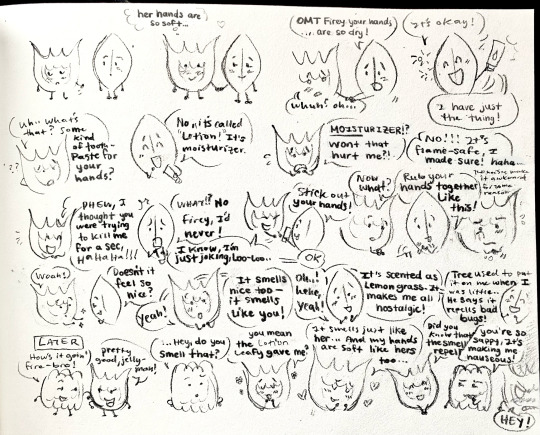 her hands are
so soft...
OMT Firey your hands
... are so dry!
It's okay!
whuh? oh...
I have just
the thing!
Uh.. what's
that? Some
kind
of tooth-
paste for
your
hands?
No, it's called
"Lotion! It's
moisturizer.
MOISTURIZER!?
Wont that
hurt me?!
(NO!!! It's
flame-safe, I
made sure! haha...
PHEW, I
thought you
were trying
to kill me
for a sec,
HaHaHa!!!
WHAT!? No
firey, I'd
never!
I know, I'm
just joking, Loo-Loo..
Stick out
your hands!
OK
Now
what?
Rub your
hands together
Like
this!
for some
reason
Woah!
Doesn't it
feel so
nice?
Yeah!
It smells
nice too -
it smells
like you!
Oh..!
hehe,
yeah!
It's scented as
Lemongrass. It
makes me all
nostalgic!
Tree used to put
it on me when I
was little..
He says it
repells bad
bugs!
LATER
How's it goin'
Fire-bro!
pretty
good, jelly-
man!
...Hey, do you
smell that?
you mean
the Lotion
Leafy gave me?
It smells just like
her... And my hands
are soft like hers
too...
Did you
know that
the smell
repell
you're so
sappy, it's
making me
nauseous!
HEY!